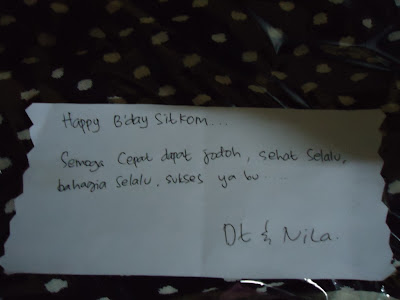 Happy B'day Sitkom...
Semoga cepat dapat jodoh, sehat selalu,
bahagia selalu, sukses ya bu....
Dt & Nila.